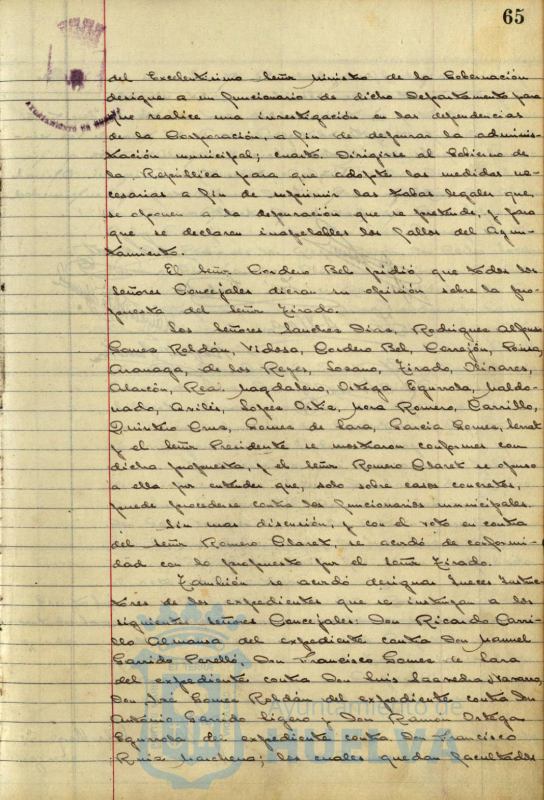 65
AYUNTAMIENTO DE HUELVA
del Excelentísimo Señor Ministro de la Gobernación
designe a un funcionario de dicho Departamento para
que realice una investigación en las dependencias
de la Corporación, a fin de depurar la adminis-
tración municipal; cuarto. Dirigirse al Gobierno de
la República para que adopte las medidas ne-
cesarias a fin de suprimir las trabas legales que
se oponen a la depuración que se pretende, y para
que se declaren inapelables los fallos del Ayun-
tamiento.
El Señor Cordero Bel pidió que todos los
Señores Concejales dieran su opinión sobre la pro-
puesta del Señor Tirado.
Los Señores Sanchez Dias, Rodriguez Alfonso
Gomez Roldán, Vidosa, Cordero Bel, Cerrejón, Ponce,
Aranaga, de los Reyes, Lozano, Tirado, Olivares,
Alarcón, Rea, Magdaleno, Ortega Egurrola, Maldo-
nado, Asilés, Lopez Ortiz, Mora Romero, Carrillo,
Quintero Cruz, Gomez de Lara, Garcia Gomez,
y el Señor Presidente se mostraron conformes con
dicha propuesta, y el Señor Romero Claret se opuso
a ella por entender que, solo sobre casos concretos,
puede procederse contra los funcionarios municipales.
Sin mas discusión, y con el voto en contra
del Señor Romero Claret, se acordó de conformi-
dad con lo propuesto por el Señor Tirado.
También se acordó designar Jueces Instruc-
tores de los expedientes que se instruyan a los
siguientes Señores Concejales: Don Ricardo Carri-
llo Almansa del expediente contra Don Manuel
Garrido Perelló, Don Francisco Gomez de Lara
del expediente contra Don Luis Saavedra Navarro,
Don José Gomez Roldán del expediente contra Don
Antonio Garrido Ligero y Don Ramón Ortega
Egurrola del expediente contra Don Francisco
Ruiz Marchena; los cuales quedan facultados
Ayuntamiento de
HUELVA